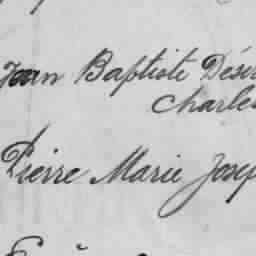 Jean Baptiste Désir
Charles
Pierre Marie Josep